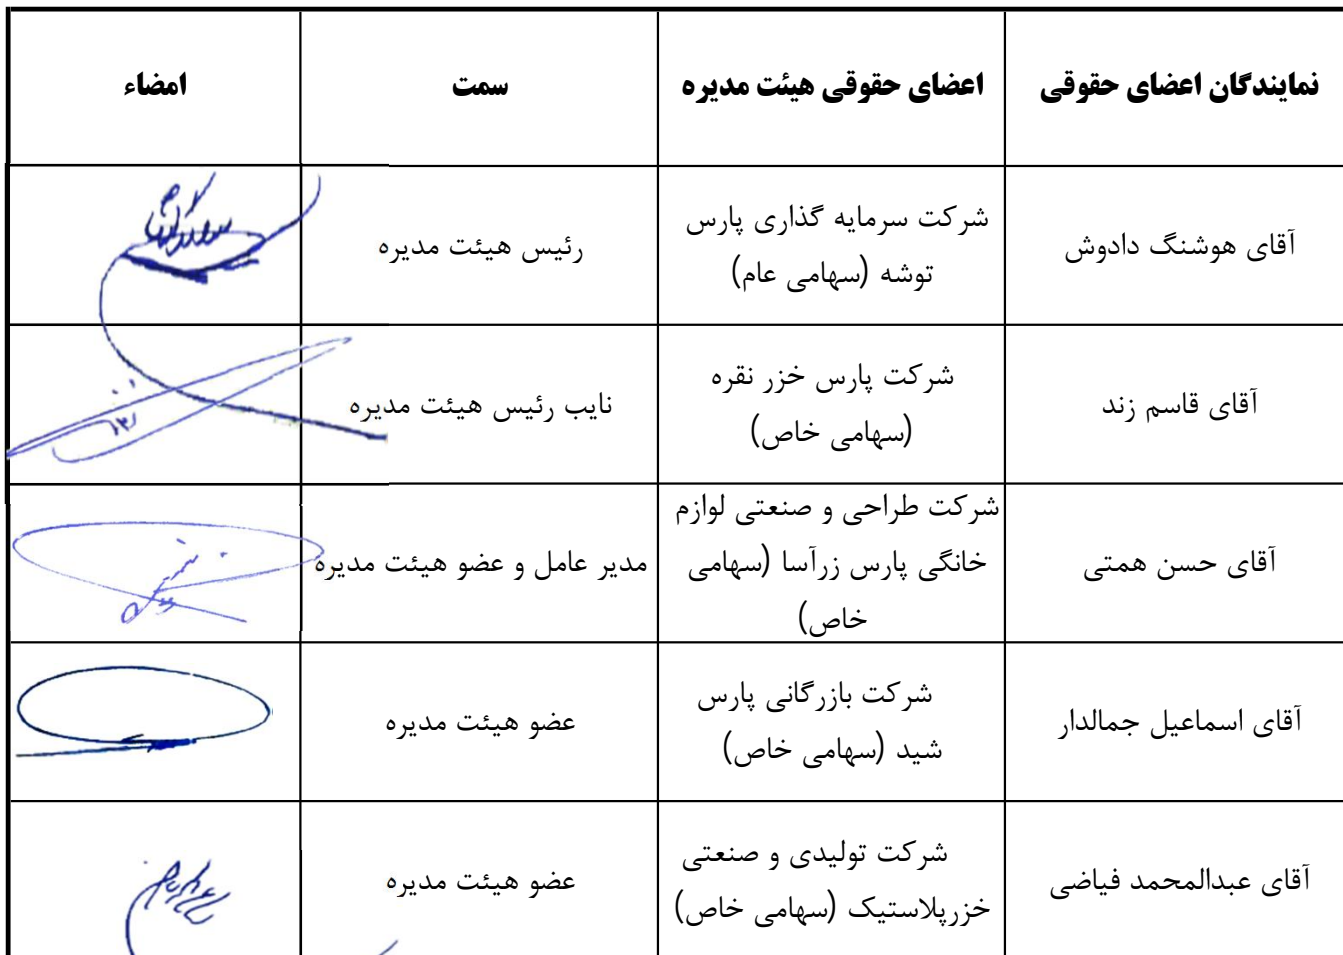 نمایندگان اعضای حقوقی
اعضای حقوقی هیئت مدیره
سمت
امضاء
آقای هوشنگ دادوش
شرکت سرمایه گذاری پارس
توشه (سهامی عام)
رئیس هیئت مدیره
آقای قاسم زند
شرکت پارس خزر نقره
(سهامی خاص)
نایب رئیس هیئت مدیره
آقای حسن همتی
شرکت طراحی و صنعتی لوازم
خانگی پارس زرآسا (سهامی
خاص)
مدیر عامل و عضو هیئت مدیره
آقای اسماعیل جمالدار
شرکت بازرگانی پارس
شید (سهامی خاص)
عضو هیئت مدیره
آقای عبدالمحمد فیاضی
شرکت تولیدی و صنعتی
خزرپلاستیک (سهامی خاص)
عضو هیئت مدیره